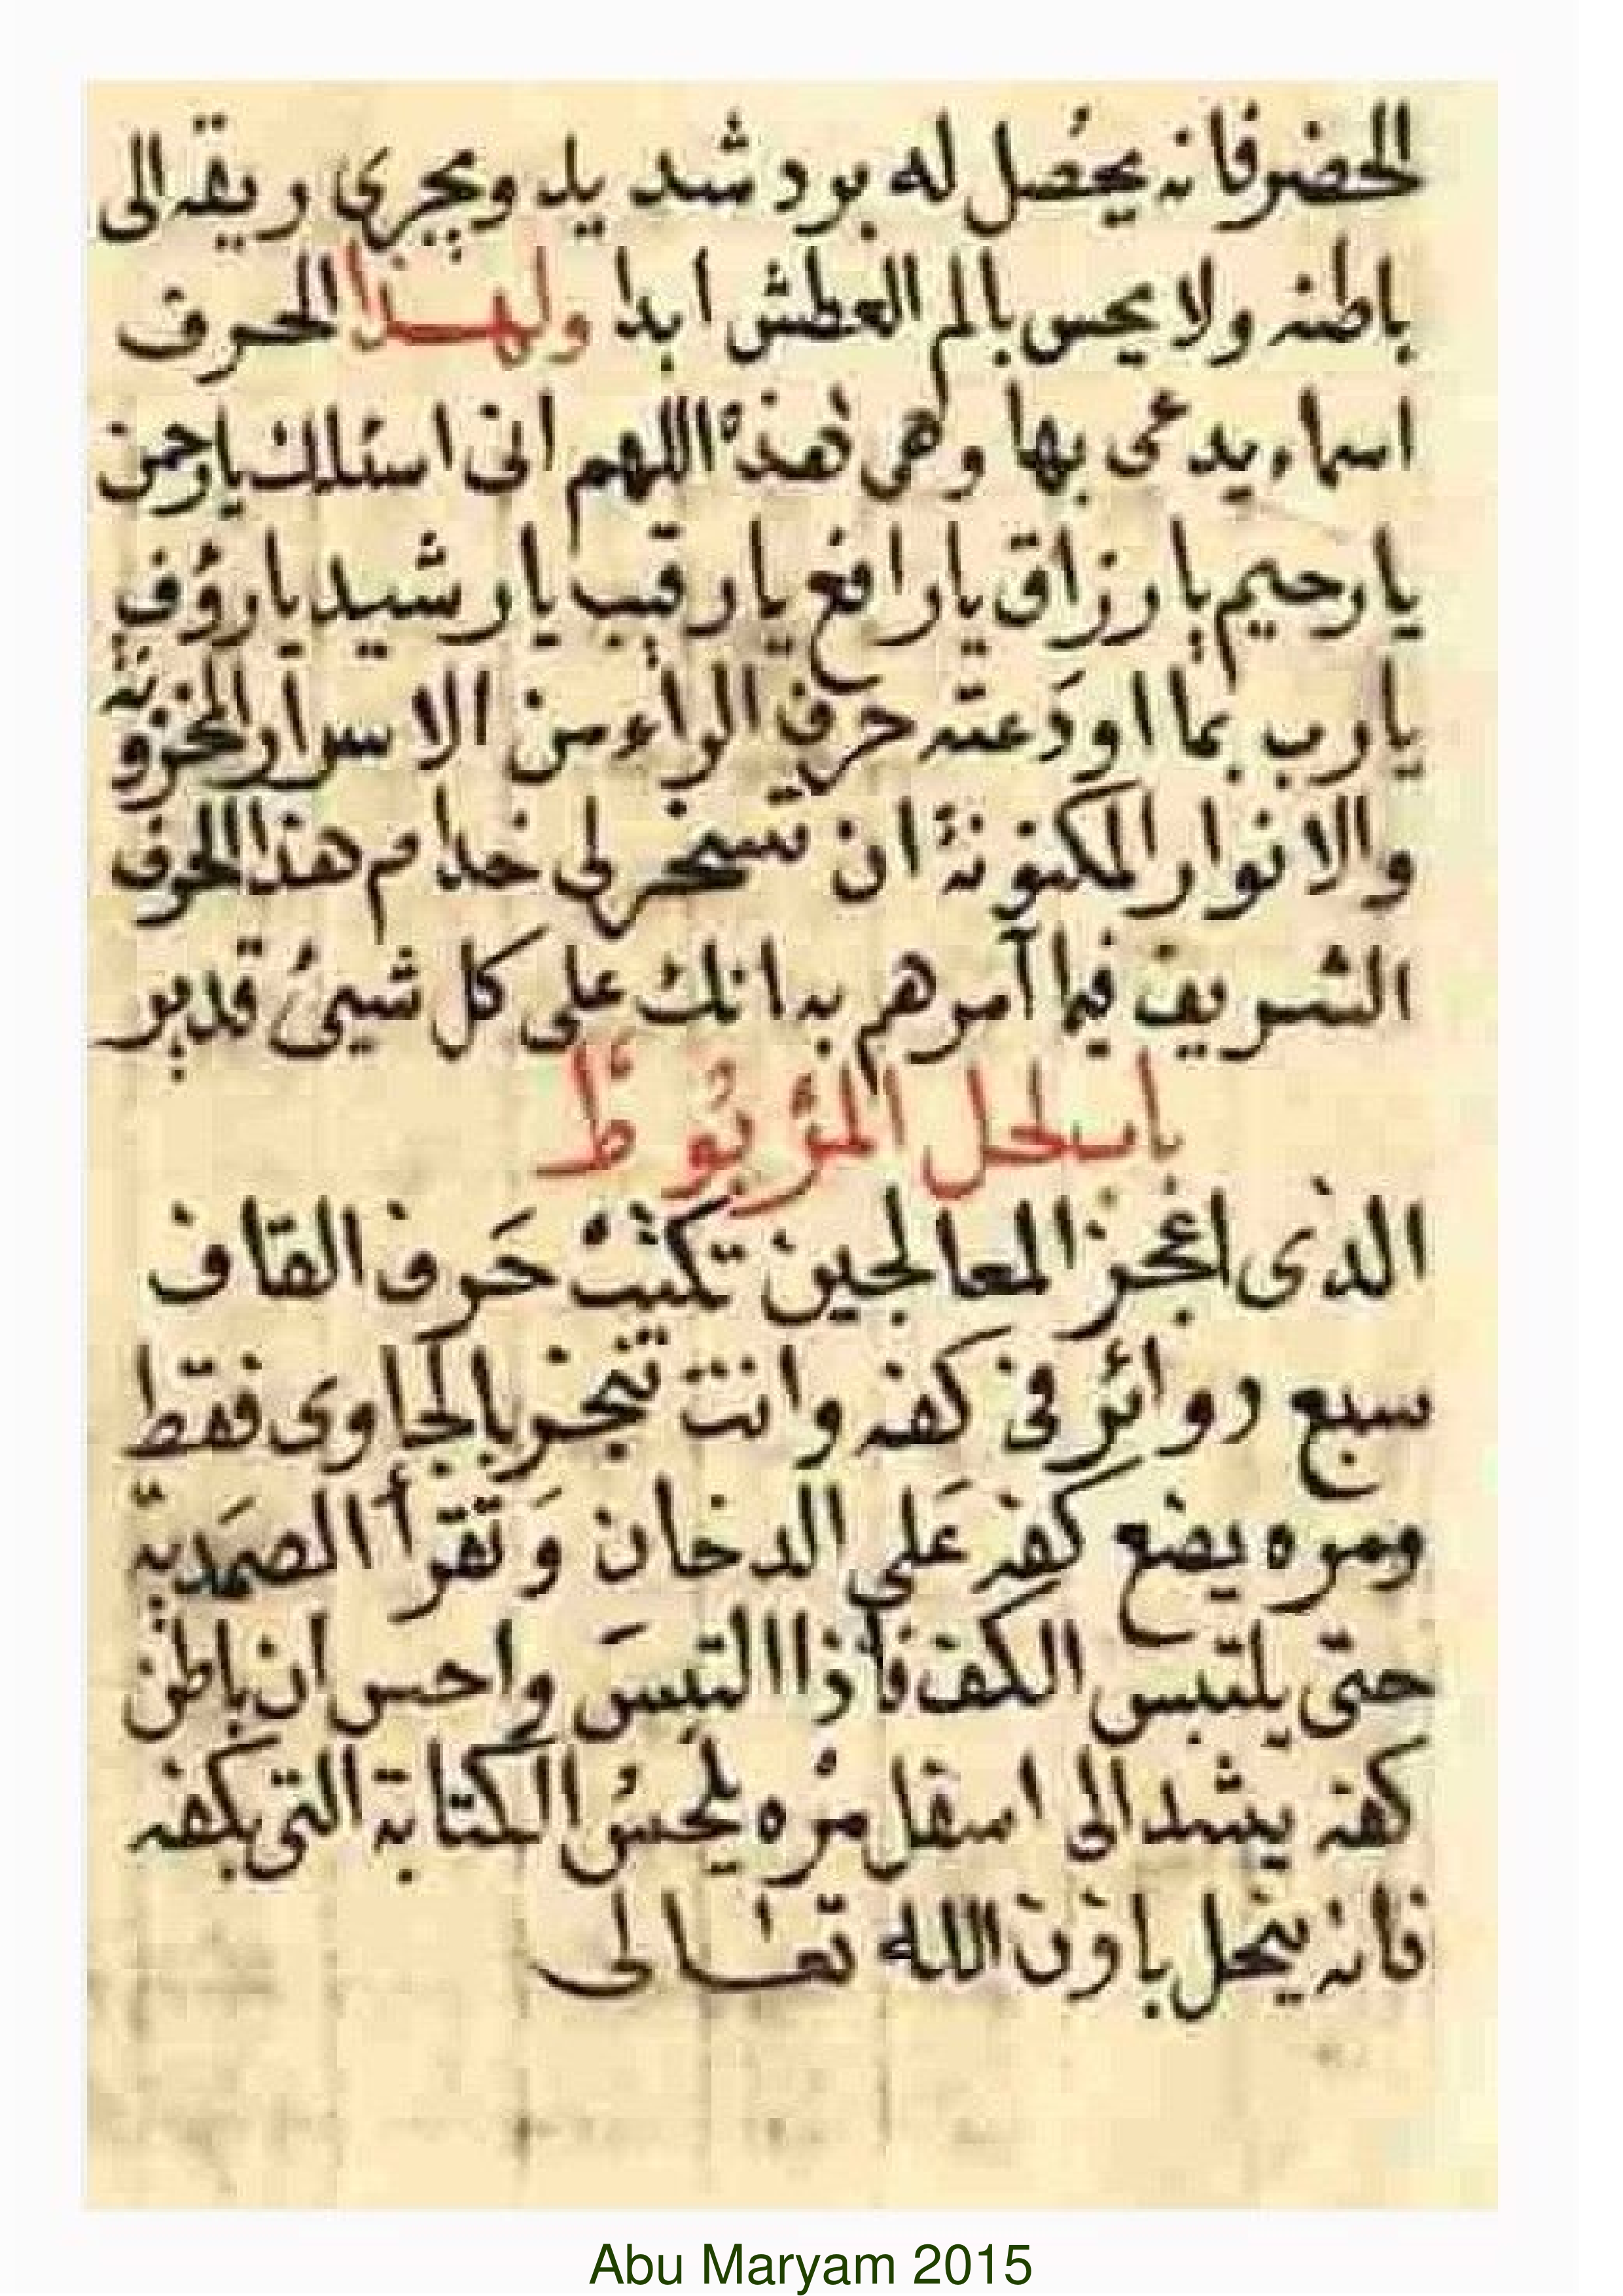 الحضر فانه يحصل له برد شديد ويجرى ريقه الى
باطنه ولا يحس بالم العطش ابدا ولهذا الحرف
اسماء يدعى بها وهى هذه اللهم انى اسئلك يا رحمن
يا رحيم يا رزاق يا رافع يا رقيب يا رشيد يا رؤف
يا رب بما اودعته حرف الراء من الاسرار المخزونة
والانوار المكنونة ان تسخر لى خدام هذا الحرف
الشريف فيما آمرهم به انك على كل شيئ قدير
باب لحل المربوط
الذى اعجز المعالجين تكتب حرف القاف
سبع دوائر فى كفه وانت تبخر بالجاوى فقط
ومره يضع كفه على الدخان وتقرأ الصمدية
حتى يلتبس الكف فأذا التبس واحس ان باطن
كفه يشد الى اسفل مره يلحس الكتابة التى بكفه
فانه ينحل باذن الله تعالى
Abu Maryam 2015